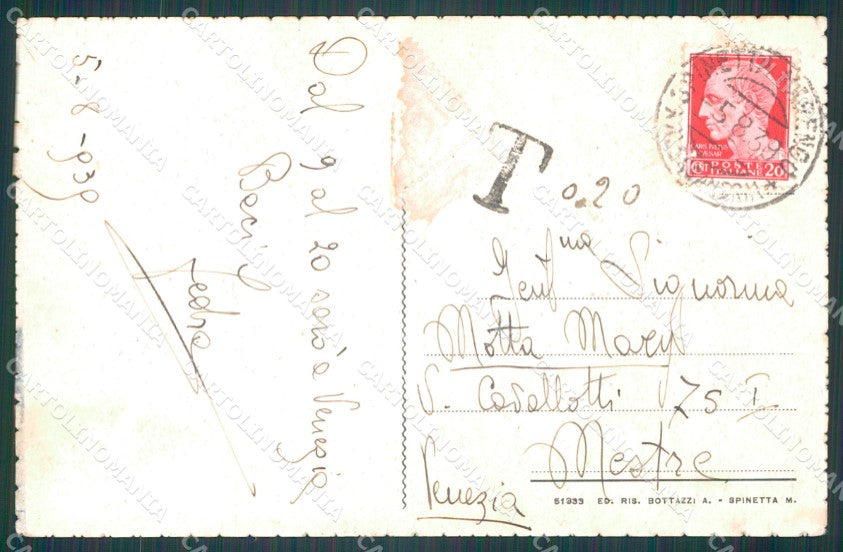 5-8-939
Dal 9 al 20 sarò a Venezia
Baci
T
0.20
POSTE
ITALIANE
20
5.8.39
Gent.ma Signorina
Motta Mary
V. Cavallotti 75 I
Mestre
Venezia
51933 ED. RIS. BOTTAZZI A. - SPINETTA M.
CARTOLINOMANIA